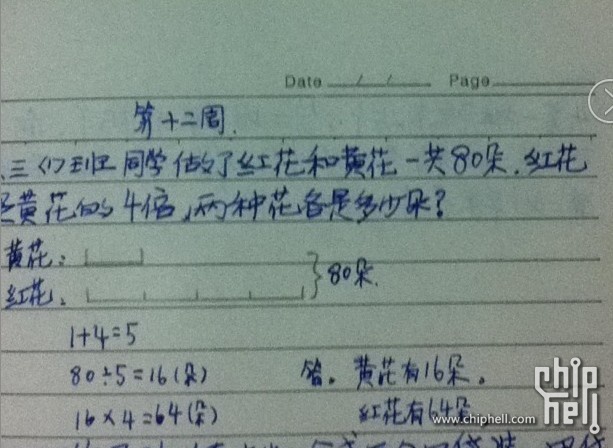 Date / / Page
第十二周.
三(1)班同学做了红花和黄花一共80朵.红花
是黄花的4倍,两种花各是多少朵?
黄花:
红花: }80朵.
1+4=5
80÷5=16(朵) 答。黄花有16朵。
16×4=64(朵) 红花有64朵
chip hell
www.chiphell.com